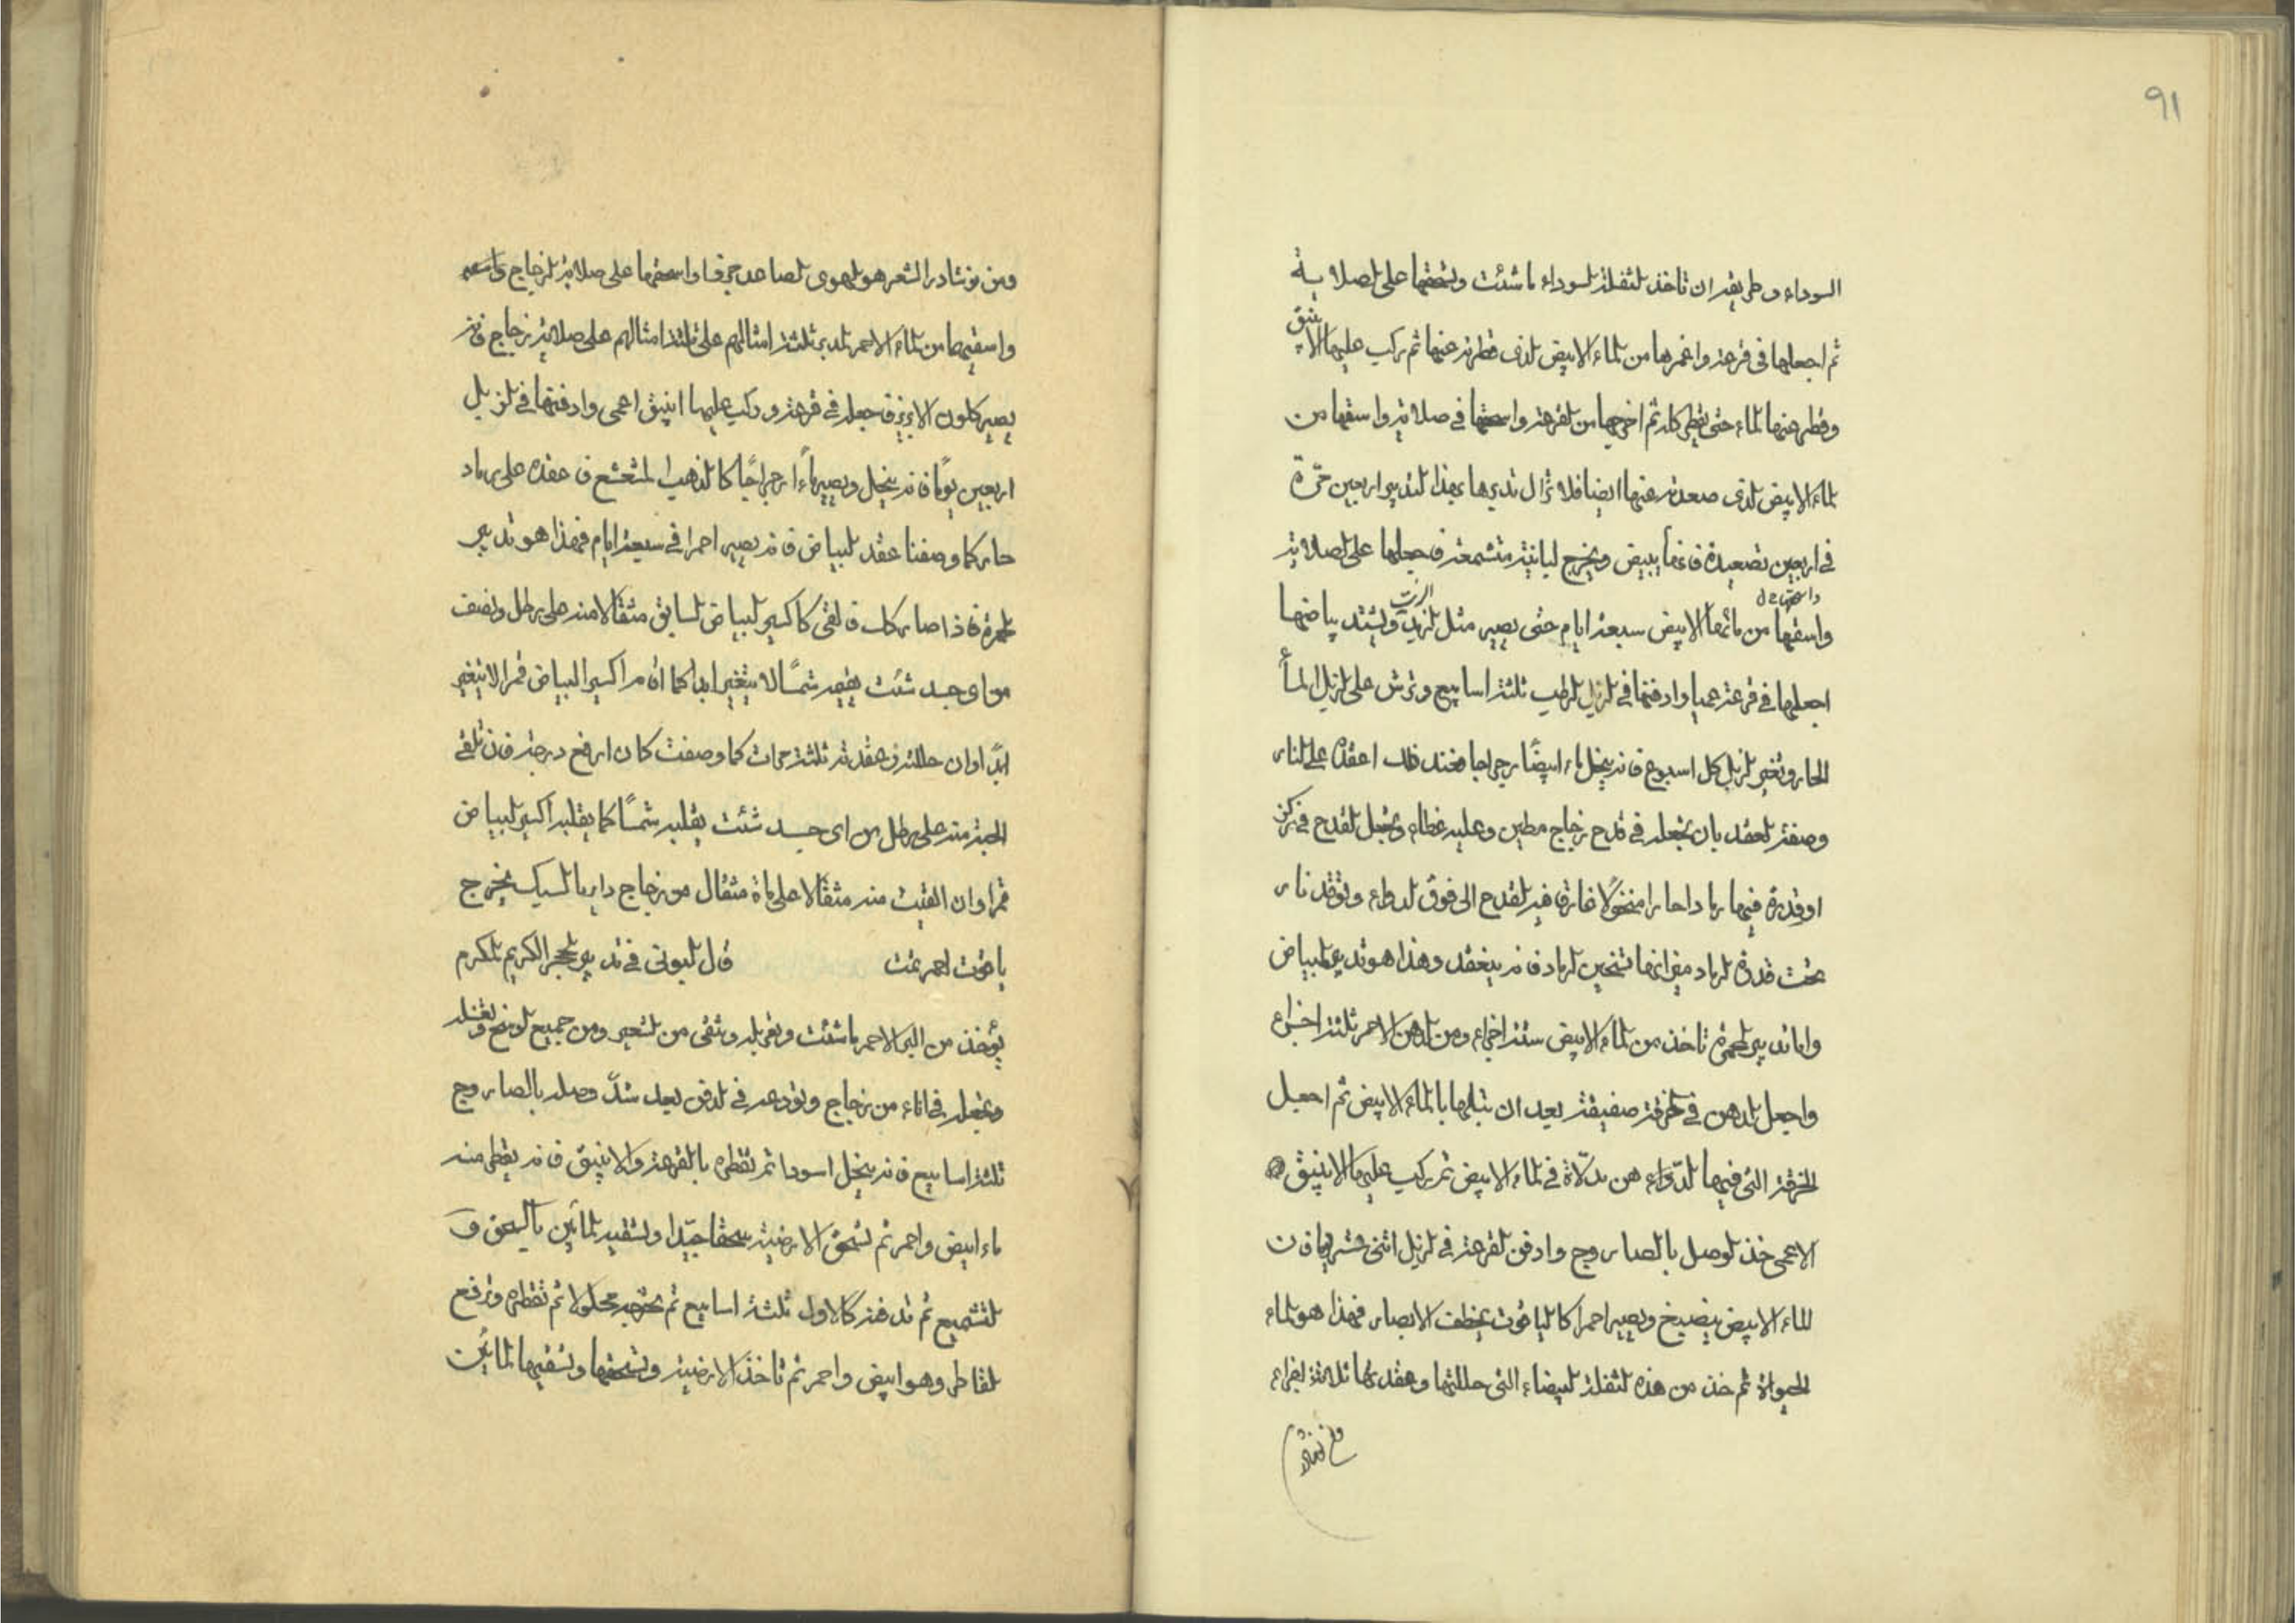 ٩١
السوداء وطريقه ان تاخذ الثفلة السوداء ما شئت وتسحقها على الصلاية
ثم اجعلها فى قرعة واغمرها من الماء الابيض الذى قطرته عنها ثم ركب عليها الانبيق
وقطر عنها الماء حتى يقطر كله ثم اخرجها من القرعة واسحقها فى صلاية واسقها من
الماء الابيض الذى صعدته عنها ايضا فلا تزال تدبرها بهذا التدبير اربعين مرّة
فى اربعين تصعيدة فانها تبيض وتخرج لبانية متشمعة فجعلها على الصلاية
واسقها من مائها الابيض سبعة ايام حتى يصير مثل الزبد ويشتد بياضها
اجعلها فى قرعة عميا وادفنها فى الزبل الرطب ثلثة اسابيع وترش على الزبل الماء
الحار وتغير الزبل كل اسبوع فانه ينحل ماء ابيضًا رجراجا فخذ ذلك اعقده على النار
وصفة العقد بان تجعله فى قدح زجاج مطين وعليه غطاء وتجعل القدح فى
او قدرة فيها رمادا حارا منخولا غارق فيه القدح الى فوق الدواء وتوقد نار
تحت قدرة الرماد مقدارها تسخين الرماد فانه ينعقد وهذا هو تدبير البياض
واما تدبير الحمرة تاخذ من الماء الابيض ستة اجزاء ومن الدهن الاحمر ثلثة اجزاء
واجعل الدهن فى خرقة صفيقة بعد ان تبلها بالماء الابيض ثم اجعل
الخرقة التى فيها الدواء هن مدلّاة فى الماء الابيض ثم ركب عليها الانبيق
الاعمى خذ الوصل بالصاروج وادفن القرعة فى الزبل اثنى عشر يوما فان
الماء الابيض ينصبغ ويصير احمرا كالياقوت يخطف الابصار فهذا هو الماء
الحيوان ثم خذ من هذه الثفلة البيضاء التى حللتها وعقدتها ثلاثة اجزاء
ومن نوشادر الشعر هو الهوى الصاعد جزفا واسحقها على صلاية الزجاج
واسقيهما من الماء الاحمر المدبر ثلثة امثالهم على ثلثة امثالهم على صلاية زجاج فانه
يصير كلون الابريز فجعله فى قرعة وركب عليها انبيق اعمى وادفنها فى الزبل
اربعين يوما فانه ينحل ويصير ماءً رجراجًا كالذهب المشعشع فعقده على رماد
حار كما وصفنا عقد البياض فانه يصير احمرا فى سبعة ايام فهذا هو تدبير
الحمرة فاذا صار كذلك فالقى كاكسير البياض السابق مثقالا منه على رطل ونصف
من اى جسد شئت يقيمه شمسًا لا يتغير ابدا كما ان من اكسير البياض قمرا لا يتغير
ابدًا وان حللته وعقدته ثلثة مرات كما وصفت كان ارفع درجة فان تلقى
الحبة منه على رطل من اى جسد شئت يقلبه شمسًا كما يقلبه اكسير البياض
قمرا وان القيت منه مثقالا على مائة مثقال من زجاج داير بالسبك يخرج
ياقوت احمر تمت قال البونى فى تدبير الحجر الكريم المكرم
يؤخذ من البير الاحمر ما شئت وتغربله وتنقى من الشعير ومن جميع الوسخ وتغسله
وتجعله فى اناء من زجاج وتودعه فى الدفن بعد شدّ وصله بالصاروج
ثلثة اسابيع فانه ينحل اسودا ثم تقطره بالقرعة والانبيق فانه يقطر منه
ماء ابيض واحمر ثم تسحق الارضية سحقا جيّدا وتسقيه المائين بالسحق و
التشميع ثم تدفنه كالاول ثلثة اسابيع ثم تخرجه محلولا ثم تقطره وترفع
القاطر وهو ابيض واحمر ثم تاخذ الارضية وتسحقها وتسقيها المائين